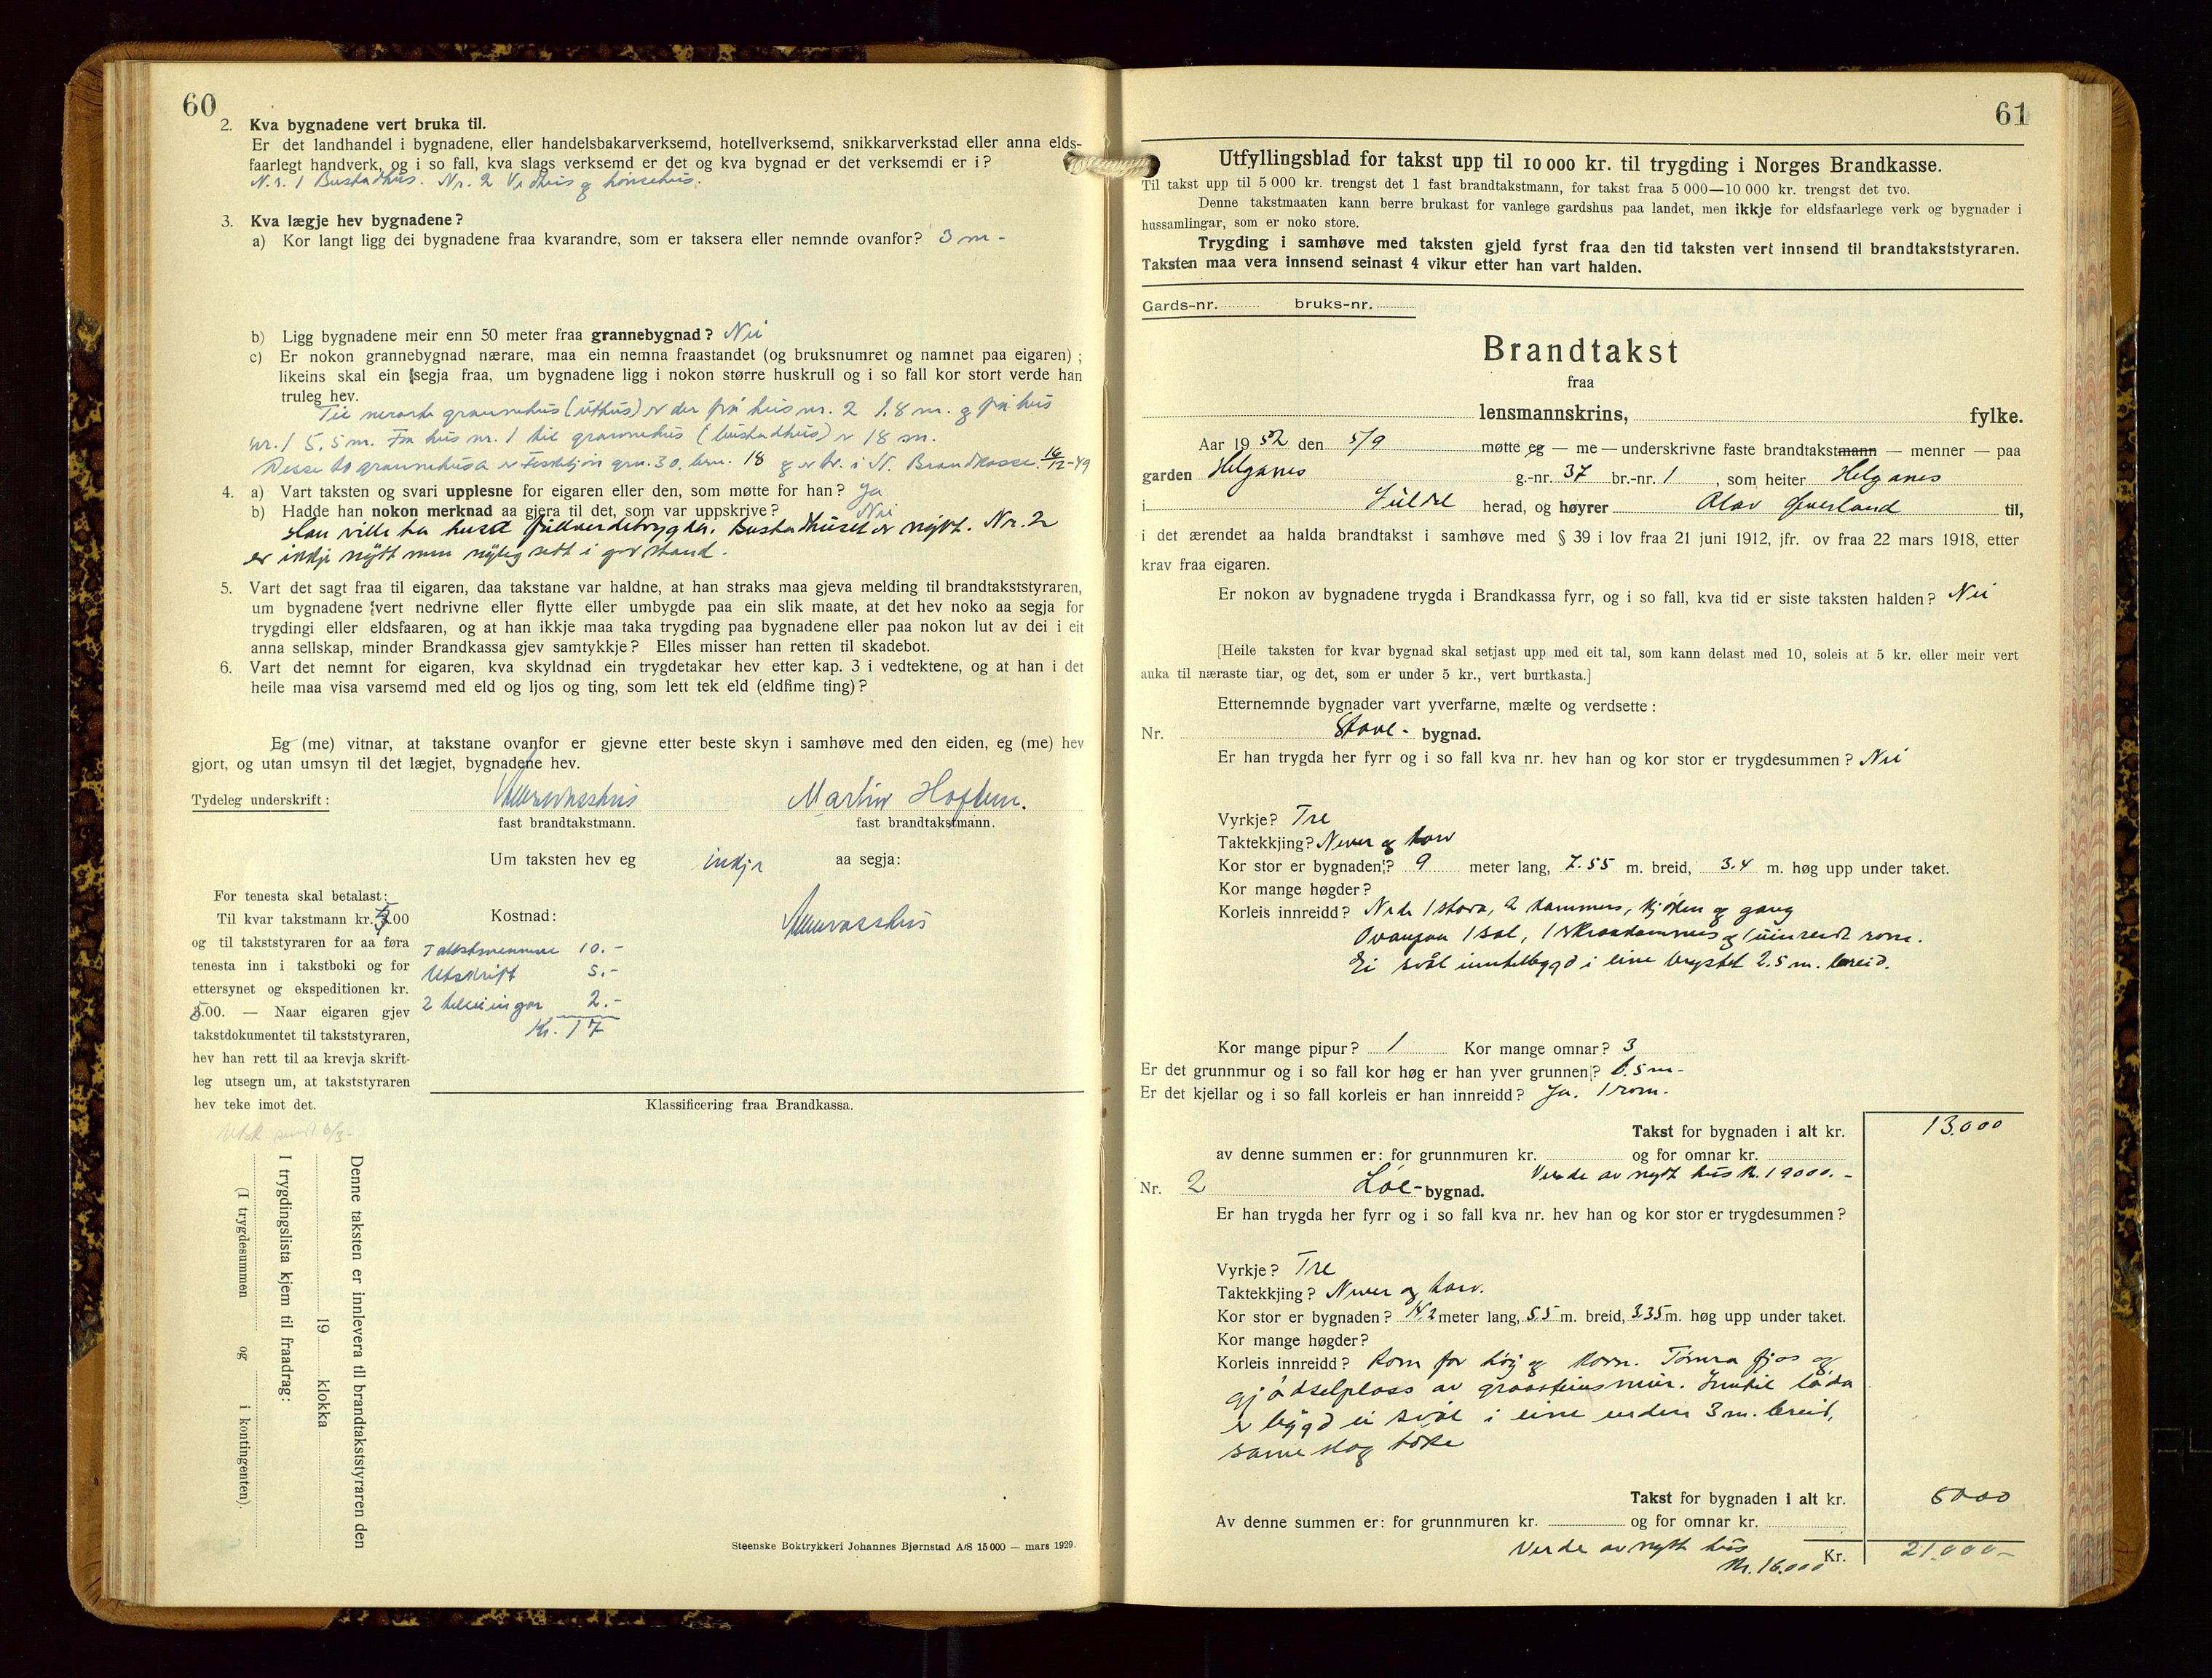 60
2. Kva bygnadene vert bruka til.
Er det landhandel i bygnadene, eller handelsbakarverksemd, hotellverksemd, snikkarverkstad eller anna elds-
faarlegt handverk, og i so fall, kva slags verksemd er det og kva bygnad er det verksemdi er i?
N.r. 1 Bustadhus. Nr. 2 Vedhus og hønsehus.
3. Kva lægje hev bygnadene?
a) Kor langt ligg dei bygnadene fraa kvarandre, som er taksera eller nemnde ovanfor? 3 m -
b) Ligg bygnadene meir enn 50 meter fraa grannebygnad? Nei
c) Er nokon grannebygnad nærare, maa ein nemna fraastandet (og bruksnumret og namnet paa eigaren);
likeins skal ein segja fraa, um bygnadene ligg i nokon større huskrull og i so fall kor stort verde han
truleg hev.
Til neraste grannehus (uthus) er der frå hus nr. 2 1.8 m. og frå hus
nr. 1 5,5 m. Fra hus nr. 1 til grannehus (bustadhus) er 18 m.
Desse to grannehusa er gnr. 30. brn. 18 og er br. i N. Brandkasse 16/12-49
4. a) Vart taksten og svari upplesne for eigaren eller den, som møtte for han? Ja
b) Hadde han nokon merknad aa gjera til det, som var uppskrive? Nei
Han ville ha huset fullverdetrygda. Bustadhuset er nytt. Nr. 2
er inkje nytt men nyleg sett i god stand.
5. Vart det sagt fraa til eigaren, daa takstane var haldne, at han straks maa gjeva melding til brandtakststyraren,
um bygnadene vert nedrivne eller flytte eller umbygde paa ein slik maate, at det hev noko aa segja for
trygdingi eller eldsfaaren, og at han ikkje maa taka trygding paa bygnadene eller paa nokon lut av dei i eit
anna sellskap, minder Brandkassa gjev samtykkje? Elles misser han retten til skadebot.
6. Vart det nemnt for eigaren, kva skyldnad ein trygdetakar hev etter kap. 3 i vedtektene, og at han i det
heile maa visa varsemd med eld og ljos og ting, som lett tek eld (eldfime ting)?
Eg (me) vitnar, at takstane ovanfor er gjevne etter beste skyn i samhøve med den eiden, eg (me) hev
gjort, og utan umsyn til det lægjet, bygnadene hev.
Tydeleg underskrift: Martin Hoftun.
fast brandtakstmann. fast brandtakstmann.
Um taksten hev eg inkje aa segja:
For tenesta skal betalast:
Til kvar takstmann kr. 5.00
og til takststyraren for aa føra
tenesta inn i takstboki og for
ettersynet og ekspeditionen kr.
5.00. — Naar eigaren gjev
takstdokumentet til takststyraren,
hev han rett til aa krevja skrift-
leg utsegn um, at takststyraren
hev teke imot det.
Kostnad:
Takstmennene 10.-
Utskrift 5.-
2 teikningar 2.-
Kr. 17
Klassificering fraa Brandkassa.
Utsk. sendt 6/3-
Denne taksten er innlevera til brandtakststyraren den
19 klokka
I trygdingslista kjem til fraadrag:
(I trygdesummen og i kontingenten).
Steenske Boktrykkeri Johannes Bjørnstad A/S 15 000 — mars 1929.
61
Utfyllingsblad for takst upp til 10 000 kr. til trygding i Norges Brandkasse.
Til takst upp til 5 000 kr. trengst det 1 fast brandtakstmann, for takst fraa 5 000—10 000 kr. trengst det tvo.
Denne takstmaaten kann berre brukast for vanlege gardshus paa landet, men ikkje for eldsfaarlege verk og bygnader i
hussamlingar, som er noko store.
Trygding i samhøve med taksten gjeld fyrst fraa den tid taksten vert innsend til brandtakststyraren.
Taksten maa vera innsend seinast 4 vikur etter han vart halden.
Gards-nr. bruks-nr.
Brandtakst
fraa
lensmannskrins, fylke.
Aar 1952 den 5/9 møtte eg — me — underskrivne faste brandtakstmann — menner — paa
garden Helganes g.-nr. 37 br.-nr. 1, som heiter Helganes
i Suldal herad, og høyrer Olav til,
i det ærendet aa halda brandtakst i samhøve med § 39 i lov fraa 21 juni 1912, jfr. ov fraa 22 mars 1918, etter
krav fraa eigaren.
Er nokon av bygnadene trygda i Brandkassa fyrr, og i so fall, kva tid er siste taksten halden? Nei
[Heile taksten for kvar bygnad skal setjast upp med eit tal, som kann delast med 10, soleis at 5 kr. eller meir vert
auka til næraste tiar, og det, som er under 5 kr., vert burtkasta.]
Etternemnde bygnader vart yverfarne, mælte og verdsette:
Nr. Stove- bygnad.
Er han trygda her fyrr og i so fall kva nr. hev han og kor stor er trygdesummen? Nei
Vyrkje? Tre
Taktekkjing? Never og torv
Kor stor er bygnaden? 9 meter lang, 7.55 m. breid, 3.4 m. høg upp under taket.
Kor mange høgder?
Korleis innreidd? Nede 1 stova, 2 kammers, kjøken og gang
Ovanpaa 1 sal, 1 skraakammers og 1 uinreidt rom.
Ei svål inntilbygd i eine brystet 2.5 m. breid.
Kor mange pipur? 1 Kor mange omnar? 3
Er det grunnmur og i so fall kor høg er han yver grunnen? 0.5 m-
Er det kjellar og i so fall korleis er han innreidd? Ja. 1 rom.
Takst for bygnaden i alt kr. 13.000
av denne summen er: for grunnmuren kr. og for omnar kr.
Verde av nytt hus kr. 19000.-
Nr. 2 Løe- bygnad.
Er han trygda her fyrr og i so fall kva nr. hev han og kor stor er trygdesummen?
Vyrkje? Tre
Taktekkjing? Never og torv.
Kor stor er bygnaden? 14.2 meter lang, 5.5 m. breid, 3.35 m. høg upp under taket.
Kor mange høgder?
Korleis innreidd? Rom for høy og korn. Tømra fjos og
gjødselplass av graasteinsmur. Inntil løda
er bygd ei svål i eine enden 3 m. breid,
same slag tekke
Takst for bygnaden i alt kr.
Av denne summen er: for grunnmuren kr. og for omnar kr.
Verde av nytt hus
kr. 16.000 Kr. 21.000-